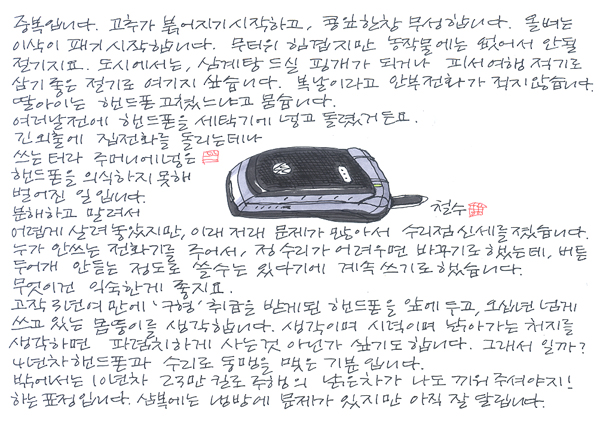 중복입니다. 고추가 붉어지기 시작하고, 콩밭 한창 무성합니다. 올벼는
이삭이 패기 시작합니다. 무더위 힘겹지만 농작물에는 없어서 안될
절기지요. 도시에서는, 삼계탕 드실 핑계가 되거나 피서여행 적기로
삼기 좋은 절기로 여기지 싶습니다. 복날이라고 안부전화가 적지않습니다.
딸아이는 핸드폰 고쳤느냐고 묻습니다.
여러날전에 핸드폰을 세탁기에 넣고 돌렸거든요.
긴 외출에 집전화를 돌리는데나
쓰는터라 주머니에 넣은
핸드폰을 의식하지 못해
벌어진 일입니다.
분해하고 말려서
어렵게 살려 놓았지만, 이래 저래 문제가 많아서 수리점 신세를 졌습니다.
누가 안쓰는 전화기를 주어서, 정 수리가 어려우면 바꾸기로 했는데, 버튼
두어개 안듣는 정도로 쓸수는 있다기에 계속 쓰기로 했습니다.
무엇이건 익숙한게 좋지요.
고작 3년여 만에 '구형' 취급을 받게된 핸드폰을 앞에 두고, 오십년 넘게
쓰고 있는 몸뚱이를 생각합니다. 생각이며 시력이며 낡아가는 처지를
생각하면 파렴치하게 사는것 아닌가 싶기도 합니다. 그래서 일까?
4년차 핸드폰과 수리로 동맹을 맺은 기분입니다.
밖에서는 10년차 23만 킬로 주행의 낡은차가 나도 끼워 주셔야지!
하는 표정입니다. 삼복에는 냉방에 문제가 있지만 아직 잘 달립니다.
철수